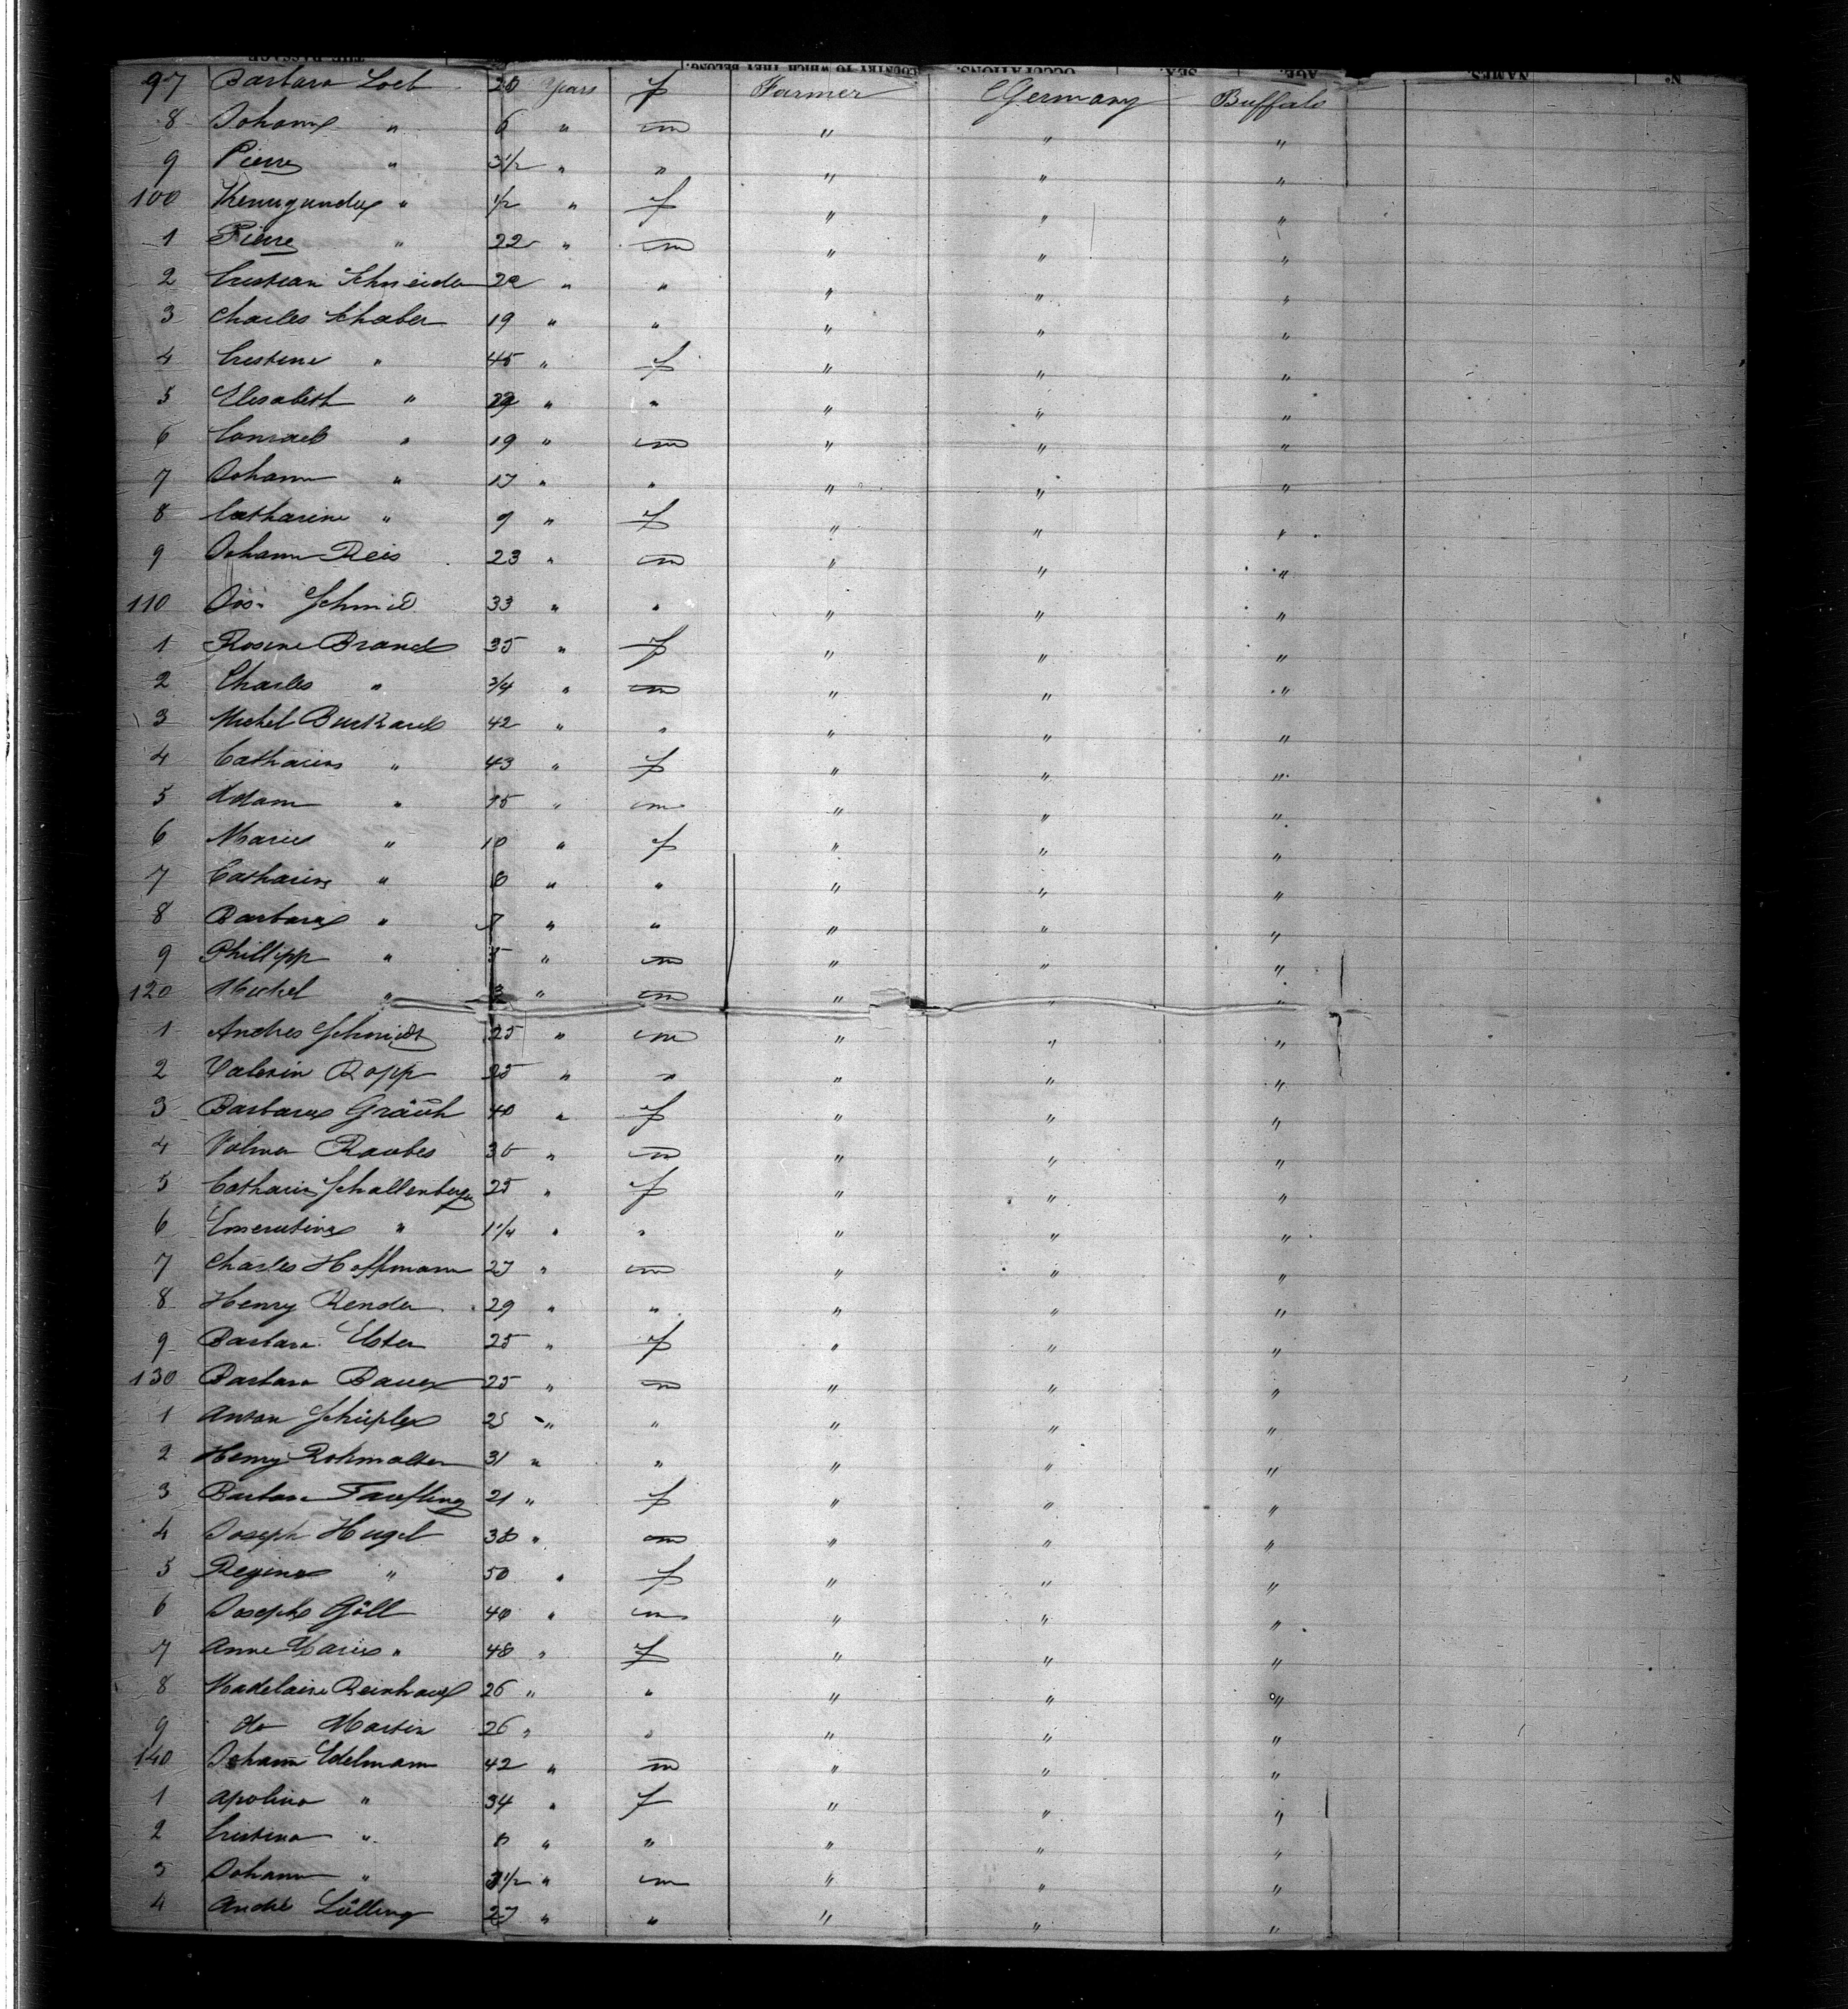 97 Barbara Loeb 20 Years f Farmer Germany Buffalo
8 Johann " 6 " m " " "
9 Pierre " 3 1/2 " " " " "
100 " 1/2 " f " " "
1 Pierre " 22 " m " " "
2 Cristian Schneider 22 " " " " "
3 Charles Schaber 19 " " " " "
4 Cristine " 45 " f " " "
5 Elisabeth " " " " " "
6 Conrad " 19 " m " " "
7 Johann " 17 " " " " "
8 Catharine " 9 " f " " "
9 Johann Reis 23 " m " " "
110 Jos. Schmid 33 " " " " "
1 Rosine Brand 35 " f " " "
2 Charles " 3/4 " m " " "
3 Michel Burkard 42 " " " " "
4 Catharine " 43 " f " " "
5 Adam " 15 " m " " "
6 Marie " 10 " f " " "
7 Catharine " " " " " "
8 Barbara " 7 " " " " "
9 Phillipp " 5 " m " " "
120 Michel " 3 " m " " "
1 Andres Schmidt 25 " m " " "
2 Valerin Ropp 25 " " " " "
3 Barbara 40 " f " " "
4 Raubes " m " " "
5 Catharine Schallenberger 25 " f " " "
6 " 1 1/4 " " " " "
7 Charles Hoffmann 27 " m " " "
8 Henry Render 29 " " " " "
9 Barbara Elster 25 " f " " "
130 Barbara Bauer 25 " m " " "
1 Anton 25 " " " " "
2 Henry 31 " " " " "
3 Barbara 21 " f " " "
4 Joseph Hugel 38 " m " " "
5 Regina " 50 " f " " "
6 Joseph Göll 40 " m " " "
7 Anne Marie " 48 " f " " "
8 Madelaine Reinhard 26 " " " " "
9 do Martin 26 " " " " "
140 Johann Edelmann 42 " m " " "
1 Apolina " 34 " f " " "
2 Cristina " " " " " "
3 Johann " 3 1/2 " m " " "
4 André Lülling 27 " " " " "